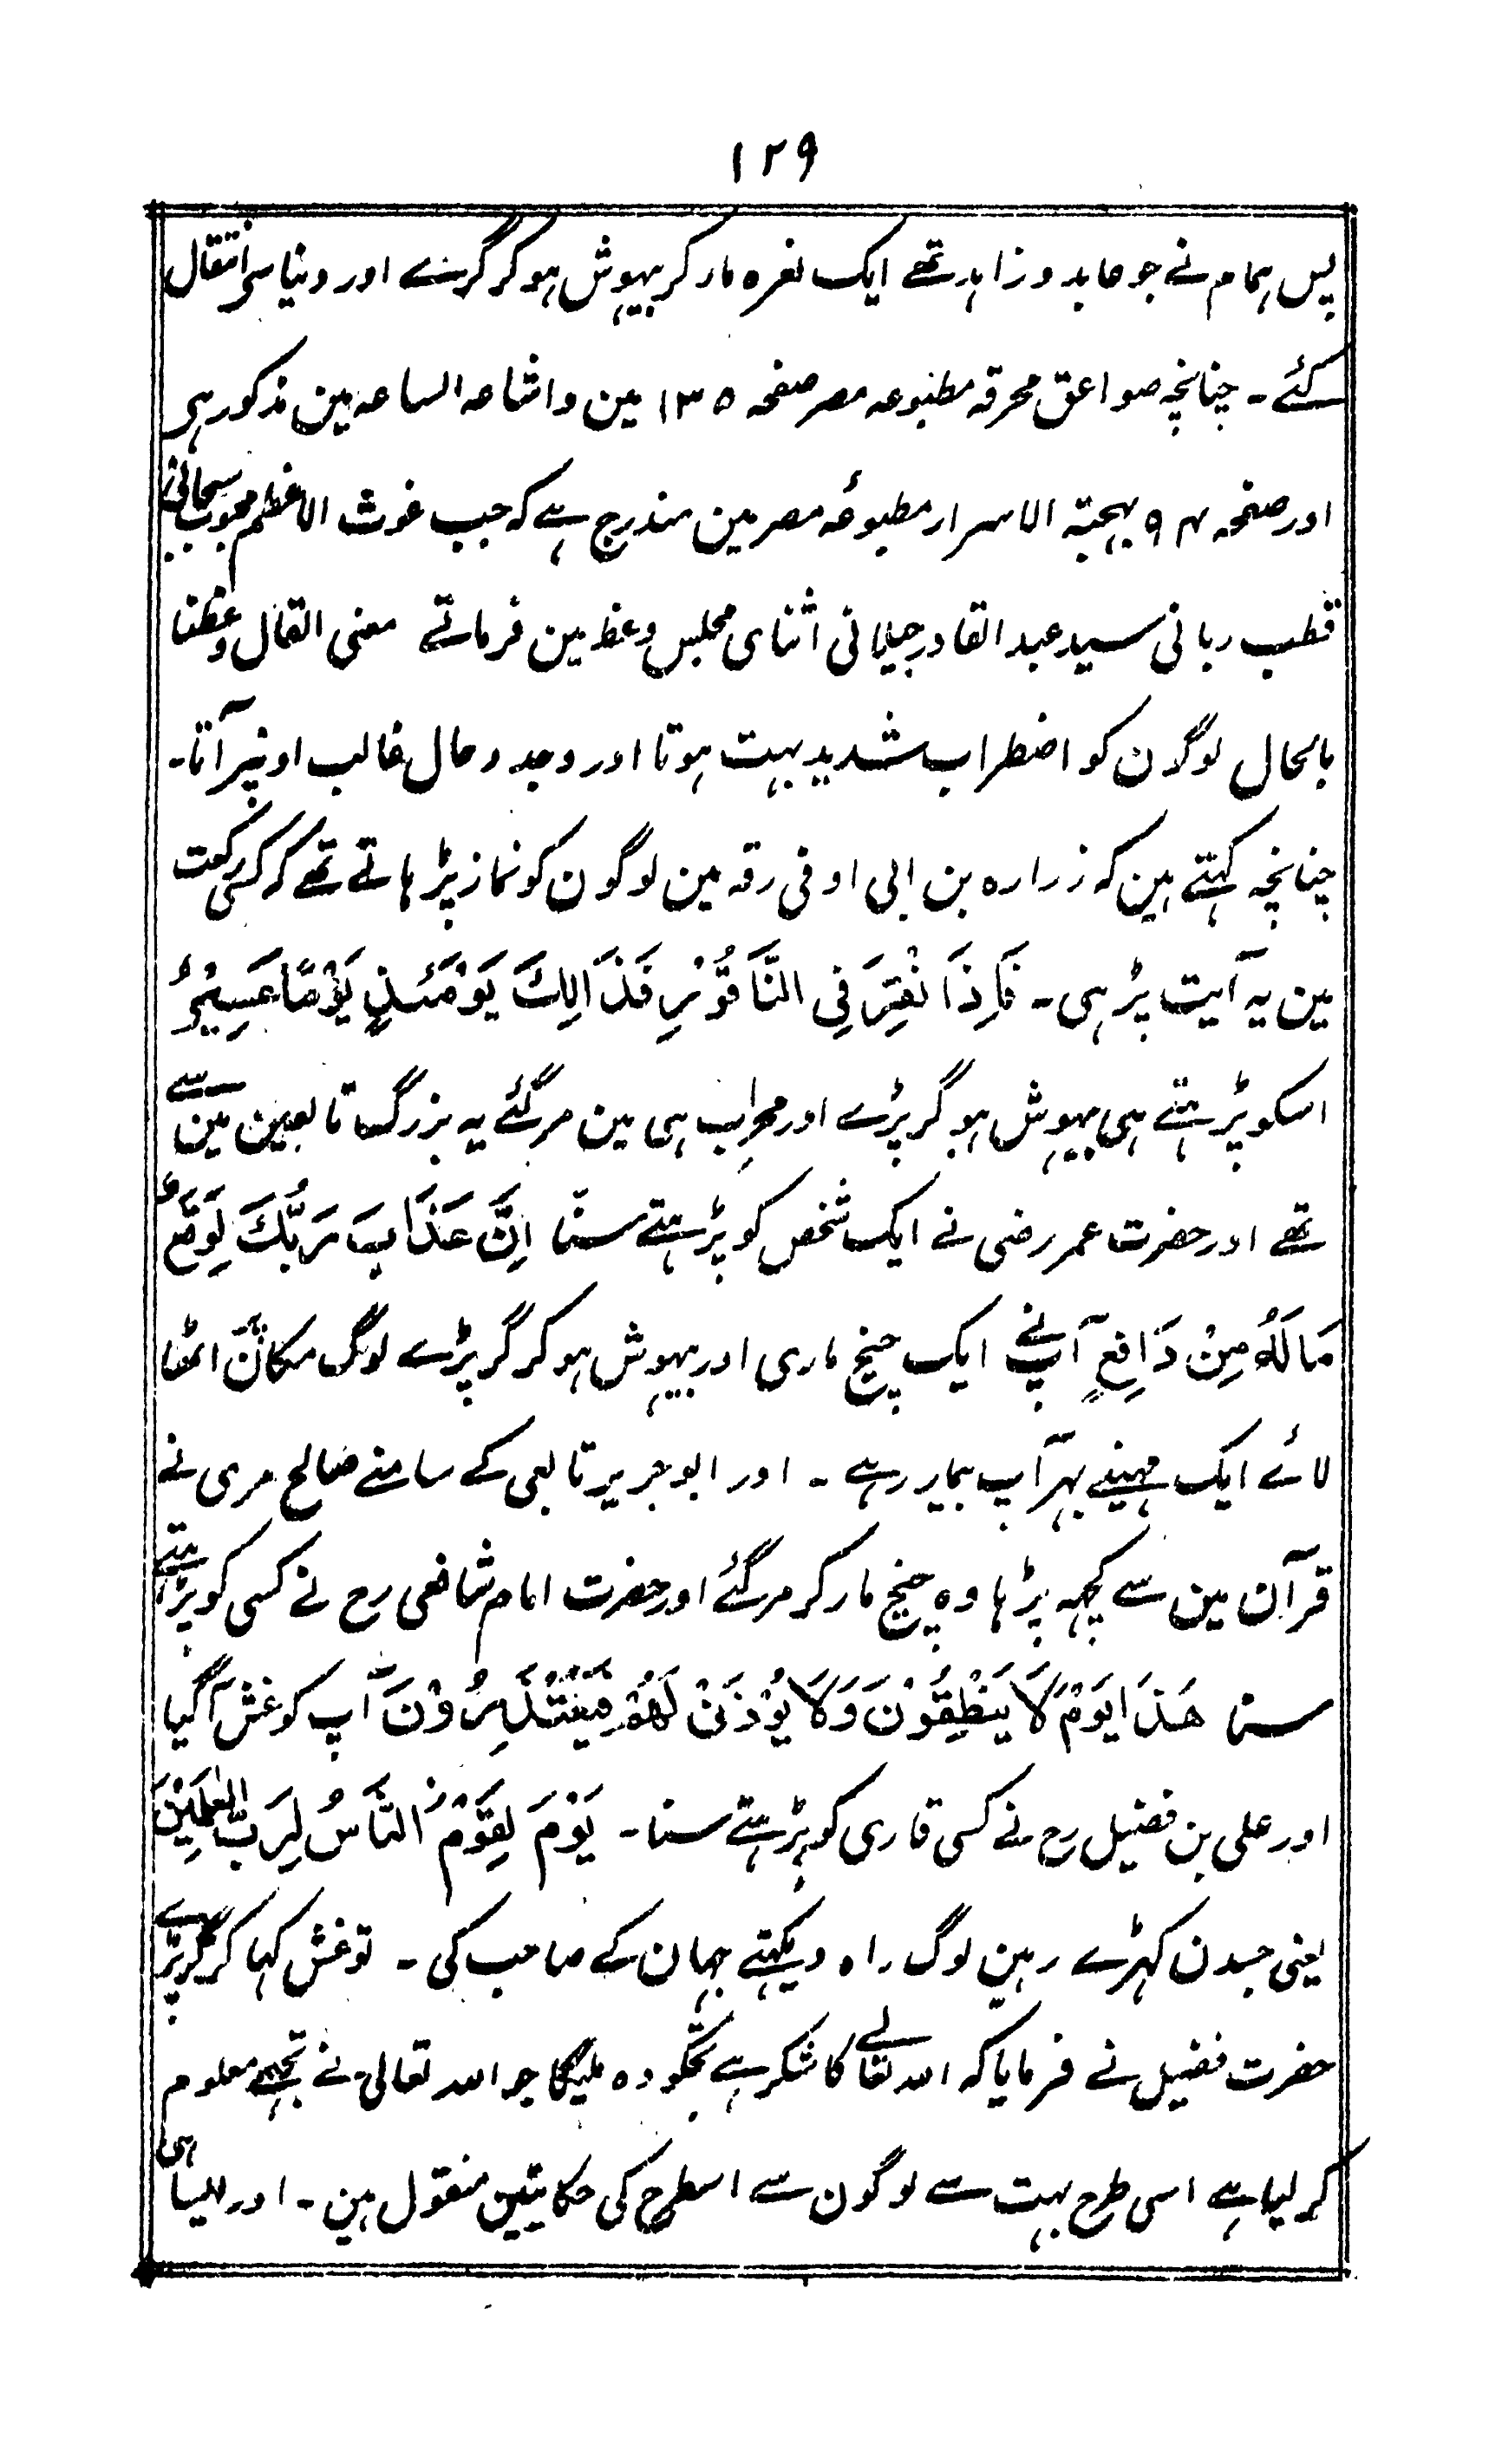 ۱۲۹
پس ہمام نے جو عابد و زاہد تھے ایک نعرہ مار کر بیہوش ہو کر گرے اور دنیا سی انتقال
کئے ۔ چنانچہ صواعق محرقہ مطبوعہ مصر صفحہ ۱۳۵ مین واشاعہ الساعہ مین مذکور ہی
اور صفحہ ۹۴ بہجتہ الاسرار مطبوعۂ مصر مین مندرج ہے کہ جب غوث الاعظم محبوب سبحانی
قطب ربانی سید عبد القادر جیلانی اثنای مجلس وعظ مین فرماتے مضی القال وعظنا
بالحال لوگون کو اضطراب شدید بہت ہوتا اور وجد و حال غالب اونپر آتا۔
چنانچہ کہتے ہین کہ زرارہ بن ابی اوفی رقہ مین لوگون کو نماز پڑہاتے تھے کہ کسی رکعت
مین یہ آیت پڑہی ۔ فَاِذَا نُقِرَ فِی النَّاقُوْرِ فَذَالِكَ يَوْمَئِذٍ يَوْمًا عَسِيْرٌ
اسکو پڑہتے ہی بیہوش ہو گر پڑے اور محراب ہی مین مر گئے یہ بزرگ تابعین مین سے
تھے اور حضرت عمر رضی نے ایک شخص کو پڑہتے سنا اِنَّ عَذَابَ رَبُّكَ لَوِقَعٌ
مَالَهُ مِنْ دَافِعٍ آپنے ایک چیخ ماری اور بیہوش ہو کر گر پڑے لوگ مکان پر اٹھا
لائے ایک مہینے بہر آپ بیمار رہے ۔ اور ابو جریر تابعی کے سامنے صالح مری نے
قرآن مین سے کچہہ پڑہا وہ چیخ مار کر مر گئے اور حضرت امام شافعی رح نے کسی کو پڑہتے
سنا هَذَا يَوْمُ لَا يَنْطِقُوْنَ وَلَا يُؤْذَنُ لَهُمْ فَيَعْتَذِرُوْنَ آپ کو غش آگیا
اور علی بن فضیل رح نے کسی قاری کو پڑہتے سنا ۔ يَوْمَ يَقُوْمُ النَّاسُ لِرَبِّ الْعٰلَمِيْنَ
یعنی جسدن کہڑے رہین لوگ راہ دیکہتے جہان کے صاحب کی ۔ تو غش کہا کر گر پڑے
حضرت فضیل نے فرمایا کہ اللہ تعالے کا شکر ہے تجکو وہ ملیگا جو اللہ تعالی نے تجہسے معلوم
کر لیا ہے اسی طرح بہت سے لوگون سے اسطرح کی حکایتین منقول ہین ۔ اور ایسا ہی